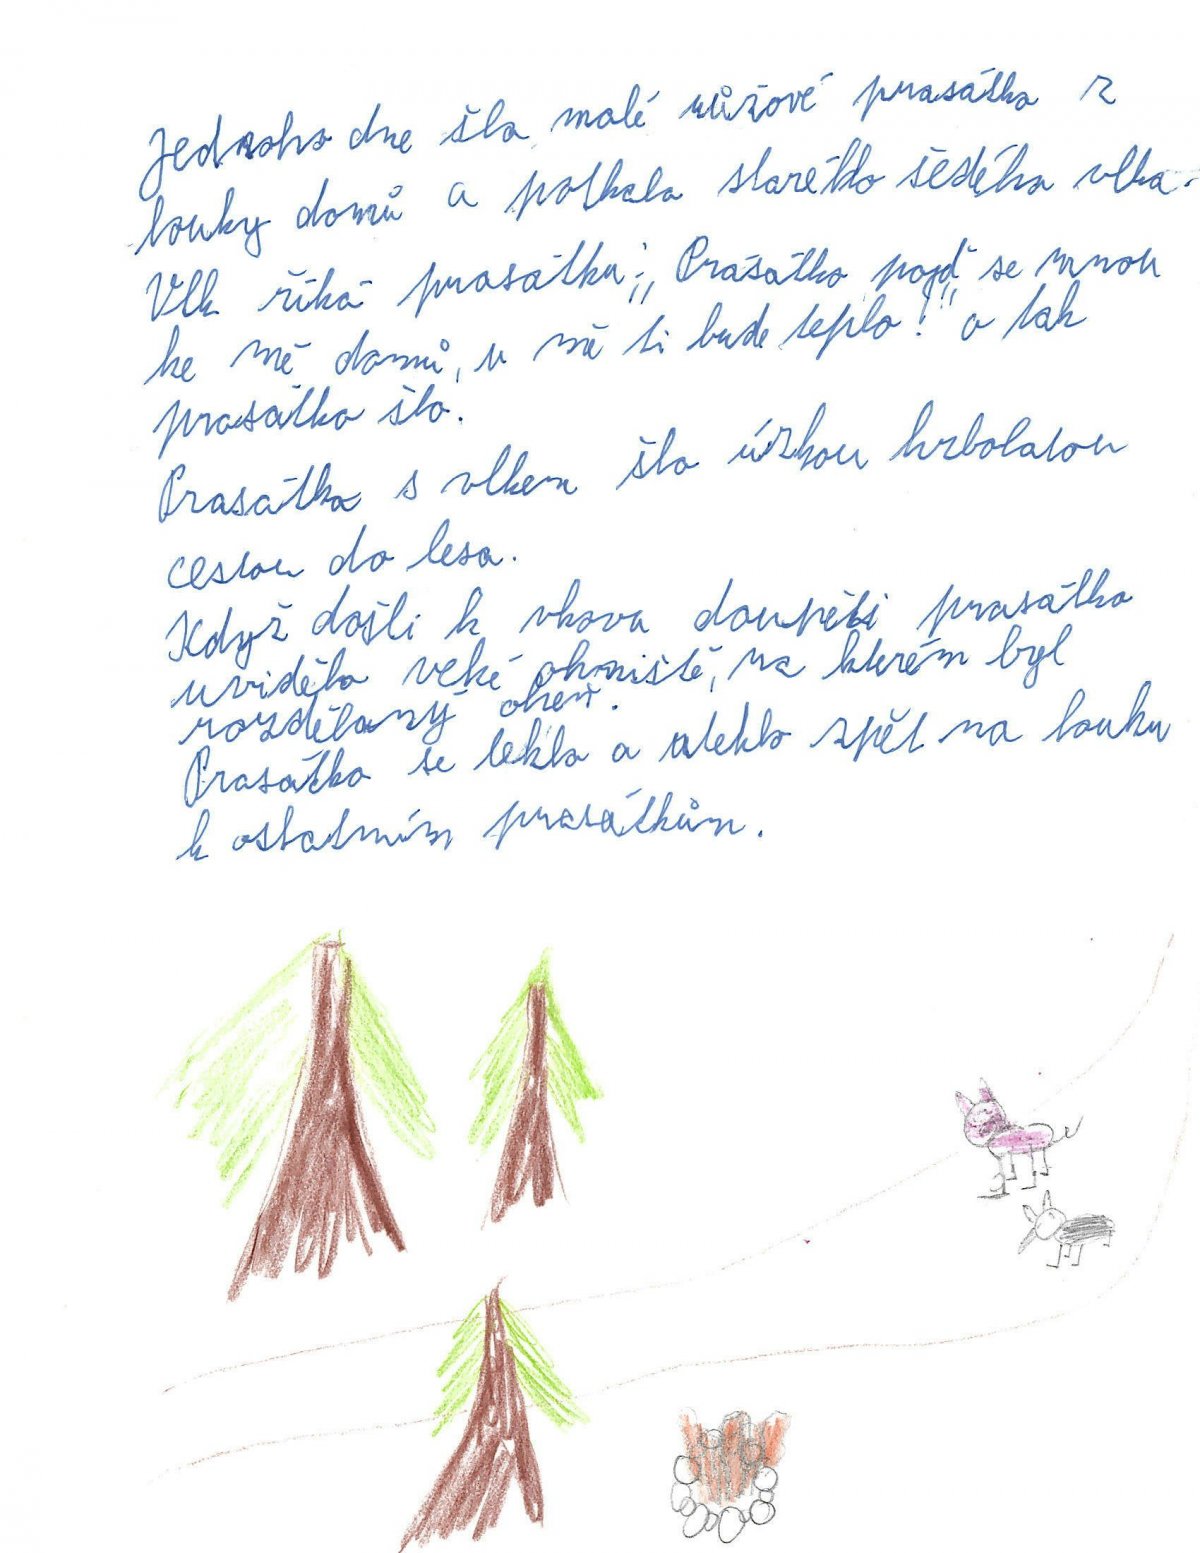 Jednoho dne šlo malé růžové prasátko z
louky domů a potkalo starého šedého vlka.
Vlk říká prasátku: „Prasátko pojď se mnou
ke mě domů, u mě ti bude teplo!" a tak
prasátko šlo.
Prasátko s vlkem šlo úzkou hrbolatou
cestou do lesa.
Když došli k vkovu doupěti prasátko
uvidělo veké ohniště, na kterém byl
rozdělaný oheň.
Prasátko se leklo a uteklo zpět na louku
k ostatním prasátkům.